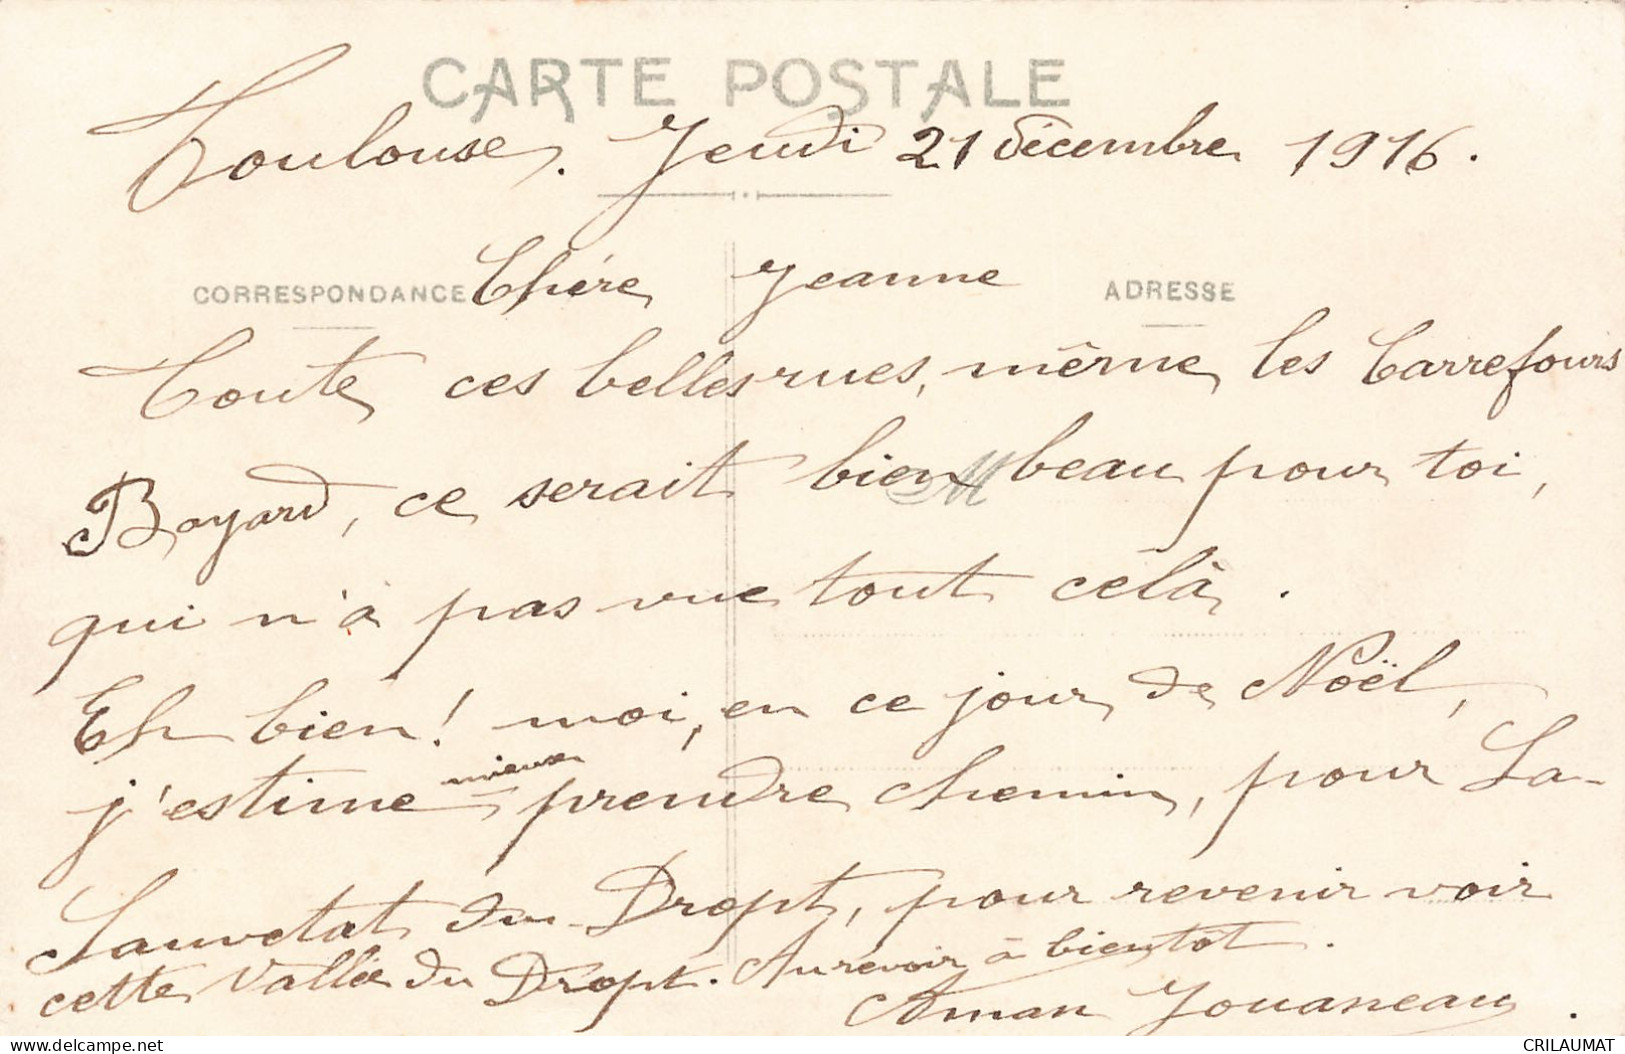 CARTE POSTALE
Toulouse. Jeudi 21 décembre 1916.
CORRESPONDANCE
Chère Jeanne
ADRESSE
Toute ces belles rues, même les Carrefours
Bayard, ce serait bien beau pour toi,
M
qui n'à pas vue tout célà.
Eh bien! moi, en ce jour de Noël,
j'estime mieux prendre chemin, pour La-
Sauvetat du Dropt, pour revenir voir
cette Vallée du Dropt. Aurevoir à bientot.
Jouaneau.
CRILAUMAT